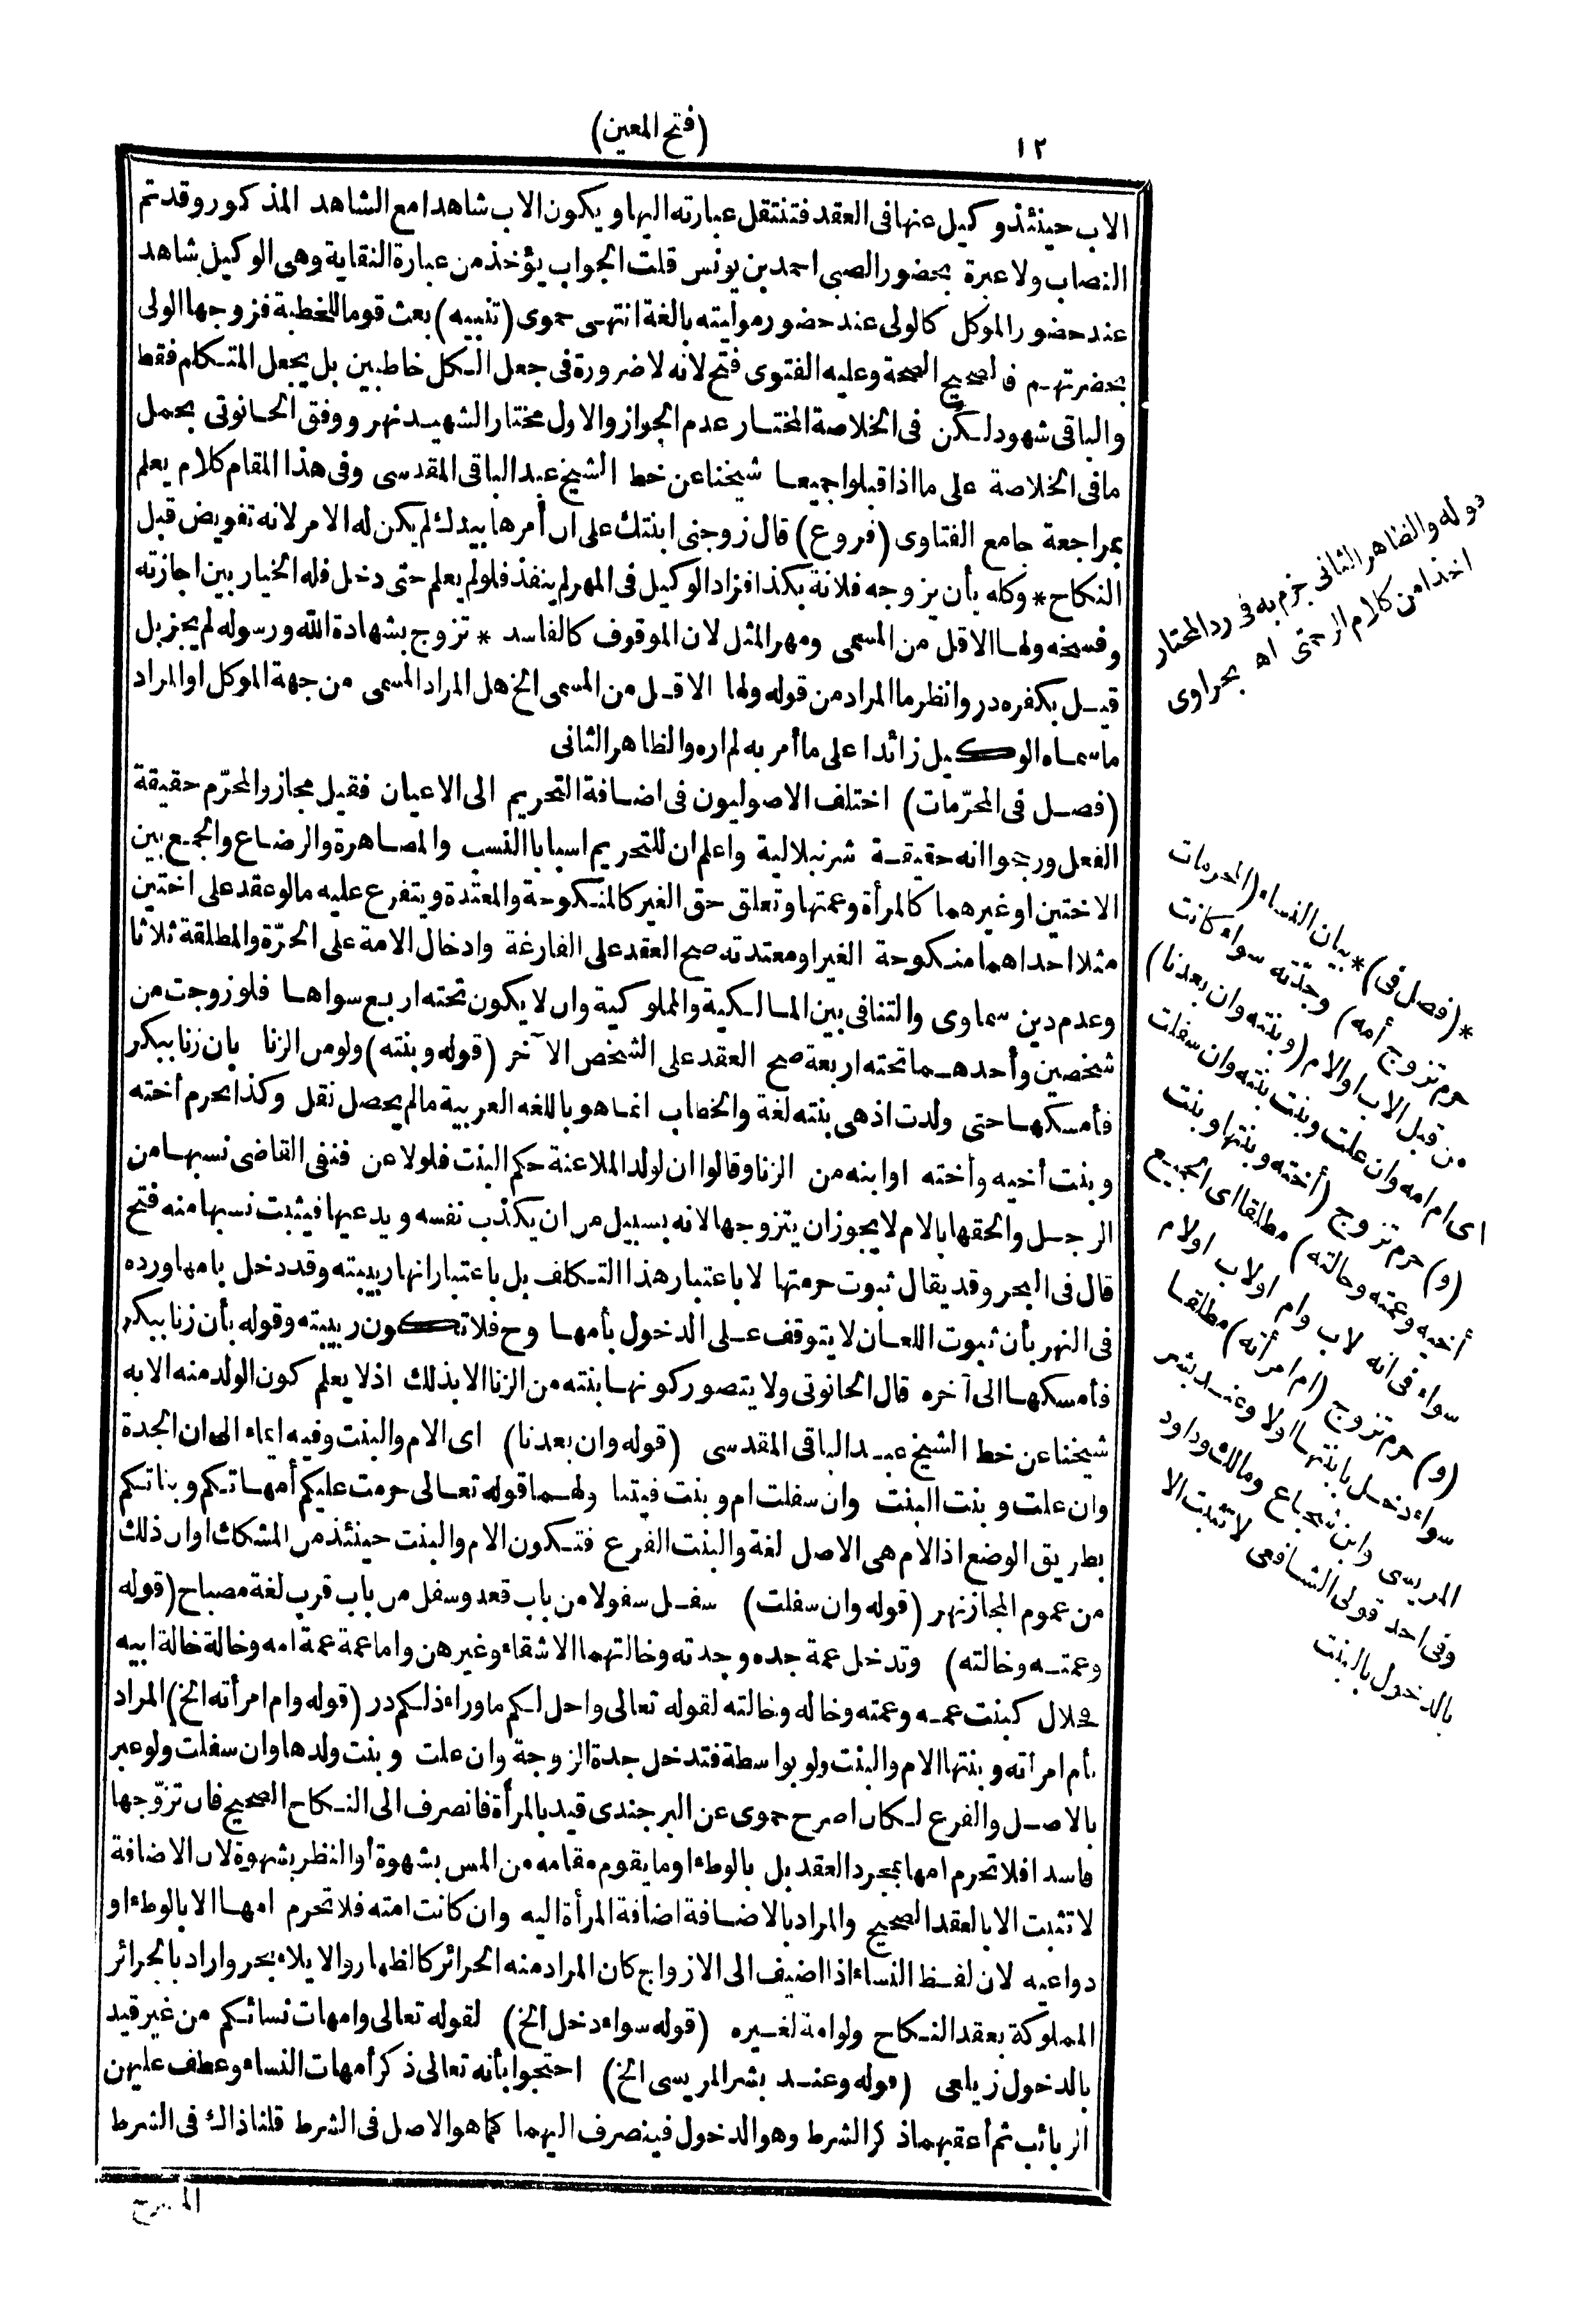 ١٢
(فتح المعين)
الاب حينئذ وكيل عنها فى العقد فتنتقل عبارته اليها و يكون الاب شاهدا مع الشاهد المذكور وقد تم
النصاب ولا عبرة بحضور الصبى احمد بن يونس قلت الجواب يؤخذ من عبارة النقاية وهى الوكيل شاهد
عند حضور الموكل كالولى عند حضور موليته بالغة انتهى حموى (تنبيه) بعث قوما للخطبة فزوجها الولى
بحضرتهم فالصحيح الصحة وعليه الفتوى فتح لانه لا ضرورة فى جعل الكل خاطبين بل يجعل المتكلم فقط
والباقى شهود لكن فى الخلاصة المختار عدم الجواز والاول مختار الشهيد نهر ووفق الحانوتى بحمل
ما فى الخلاصة على ما اذا قبلوا جميعا شيخنا عن خط الشيخ عبد الباقى المقدسى وفى هذا المقام كلام يعلم
بمراجعة جامع الفتاوى (فروع) قال زوجنى ابنتك على ان أمرها بيدك لم يكن له الامر لانه تفويض قبل
النكاح * وكله بأن يزوجه فلانة بكذا فزاد الوكيل فى المهر لم ينفذ فلو لم يعلم حتى دخل فله الخيار بين اجازته
وفسخه ولها الاقل من المسمى ومهر المثل لان الموقوف كالفاسد * تزوج بشهادة الله ورسوله لم يجز بل
قيل يكفر در وانظر ما المراد من قوله ولها الاقل من المسمى الخ هل المراد المسمى من جهة الموكل او المراد
ما سماه الوكيل زائدا على ما أمر به لم اره والظاهر الثانى
(فصل فى المحرّمات) اختلف الاصوليون فى اضافة التحريم الى الاعيان فقيل مجاز والمحرّم حقيقة
الفعل ورجحوا انه حقيقة شرنبلالية واعلم ان للتحريم اسبابا النسب والمصاهرة والرضاع والجمع بين
الاختين او غيرهما كالمرأة وعمتها وتعلق حق الغير كالمنكوحة والمعتدة ويتفرع عليه ما لو عقد على اختين
مثلا احداهما منكوحة الغير او معتدته صح العقد على الفارغة وادخال الامة على الحرّة والمطلقة ثلاثا
وعدم دين سماوى والتنافى بين المالكية والمملوكية وان لا يكون تحته اربع سواها فلو زوجت من
شخصين وأحدهما تحته اربعة صح العقد على الشخص الآخر (قوله وبنته) ولو من الزنا بان زنا ببكر
فأمسكها حتى ولدت اذ هى بنته لغة والخطاب انما هو باللغه العربية ما لم يحصل نقل وكذا يحرم أخته
وبنت أخيه وأخته اوابنه من الزنا وقالوا ان لولد الملاعنة حكم البنت فلو لاعن فنفى القاضى نسبها من
الرجل والحقها بالام لا يجوز ان يتزوجها لانه بسبيل من ان يكذب نفسه ويدعيها فيثبت نسبها منه فتح
قال فى البحر وقد يقال ثبوت حرمتها لا باعتبار هذا التكلف بل باعتبار انها ربيبته وقد دخل بامها ورده
فى النهر بأن ثبوت اللعان لا يتوقف على الدخول بأمها وح فلا تكون ربيبته وقوله بأن زنا ببكر
فأمسكها الى آخره قال الحانوتى ولا يتصور كونها بنته من الزنا الا بذلك اذ لا يعلم كون الولد منه الا به
شيخنا عن خط الشيخ عبد الباقى المقدسى (قوله وان بعدنا) اى الام والبنت وفيه ايماء الى ان الجدة
وان علت وبنت البنت وان سفلت ام وبنت فيتناولهما قوله تعالى حرمت عليكم أمهاتكم وبناتكم
بطريق الوضع اذ الام هى الاصل لغة والبنت الفرع فتكون الام والبنت حينئذ من المشكك او ان ذلك
من عموم المجاز نهر (قوله وان سفلت) سفل سفولا من باب قعد وسفل من باب قرب لغة مصباح (قوله
وعمته وخالته) وتدخل عمة جده وجدته وخالتهما الاشقاء وغيرهن واما عمة عمة امه وخالة خالة ابيه
حلال كبنت عمه وعمته وخاله وخالته لقوله تعالى واحل لكم ما وراء ذلكم در (قوله وام امرأته الخ) المراد
بأم امرأته وبنتها الام والبنت ولو بواسطة فتدخل جدة الزوجة وان علت وبنت ولدها وان سفلت ولو عبر
بالاصل والفرع لكان اصرح حموى عن البرجندى قيد بالمرأة فانصرف الى النكاح الصحيح فان تزوّجها
فاسدا فلا تحرم امها بمجرد العقد بل بالوطء او ما يقوم مقامه من المس بشهوة أو النظر بشهوة لان الاضافة
لا تثبت الا بالعقد الصحيح والمراد بالاضافة اضافة المرأة اليه وان كانت امته فلا تحرم امها الا بالوطء او
دواعيه لان لفظ النساء اذا اضيف الى الازواج كان المراد منه الحرائر كالظهار والايلاء بحر واراد بالحرائر
المملوكة بعقد النكاح ولو امة لغيره (قوله سواء دخل الخ) لقوله تعالى وامهات نسائكم من غير قيد
بالدخول زيلعى (قوله وعند بشر المريسى الخ) احتجوا بأنه تعالى ذكر أمهات النساء وعطف عليهن
الربائب ثم أعقبهما ذكر الشرط وهو الدخول فينصرف اليهما كما هو الاصل فى الشرط قلنا ذاك فى الشرط
قوله والظاهر الثانى جزم به فى رد المحتار
اخذا من كلام الرحمتى اه بحراوى
*(فصل فى)* بيان النساء (المحرمات
حرم تزوج أمه) وجدّته سواء كانت
من قبل الاب او الام (وبنته وان بعدنا)
اى ام امه وان علت وبنت بنته وان سفلت
(و) حرم تزوج (أخته وبنتها وبنت
أخيه وعمته وخالته) مطلقا اى الجميع
سواء فى انه لاب وام اولاب اولام
(و) حرم تزوج (ام امرأته) مطلقا
سواء دخل بابنتها اولا وعند بشر
المريسى وابن شجاع ومالك وداود
وفى احد قولى الشافعى لا تثبت الا
بالدخول بالبنت